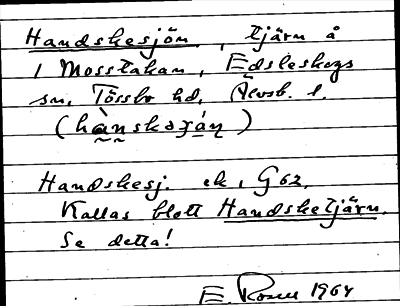 Handskesjön, tjärn å
i Mosstakan, Edsleskogs
sn, Tössbo hd, Älvsb. l.
(hànskəʂǫ́n)
Handskesj. ek. G62.
Kallas blott Handsketjärn.
Se detta!
E. 1964